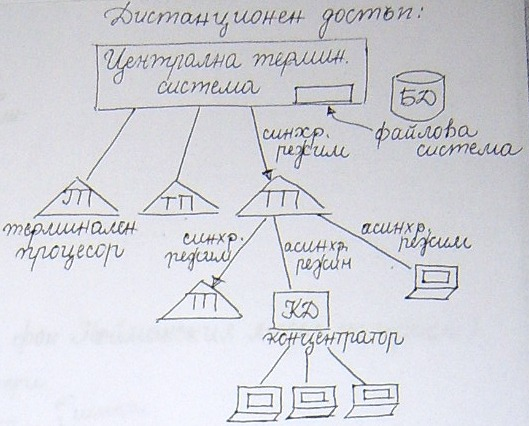 Дистанционен достъп:
Централна термин.
система
БД
синхр.
режим
файлова
система
ТП
ТП
ТП
терминален
процесор
синхр.
режим
асинхр.
режим
асинхр. режим
ТП
КД
концентратор